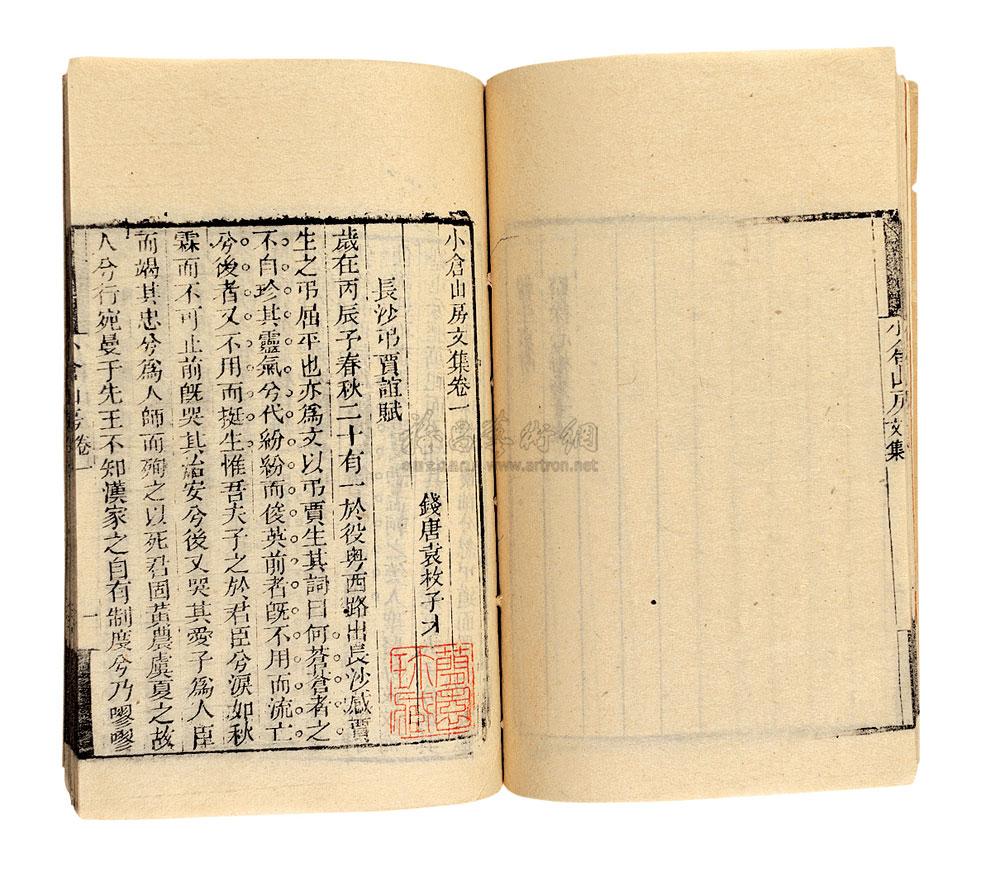 小倉山房文集卷一
錢唐袁枚子才
長沙弔賈誼賦
歲在丙辰予春秋二十有一於役粤西路出長沙感賈
生之弔屈平也亦爲文以弔賈生其詞曰何蒼蒼者之
不自珍其靈氣兮代紛紛而俊英前者旣不用而流亡
兮後者又不用而挺生惟吾夫子之於君臣兮淚如秋
霖而不可止前旣哭其治安兮後又哭其愛子爲人臣
而竭其忠兮爲人師而殉之以死君固黃農虞夏之故
人兮行宛曼于先王不知漢家之自有制度兮乃嘐嘐
小倉山房卷一
一
小倉山房文集
珍藏
www.artron.net